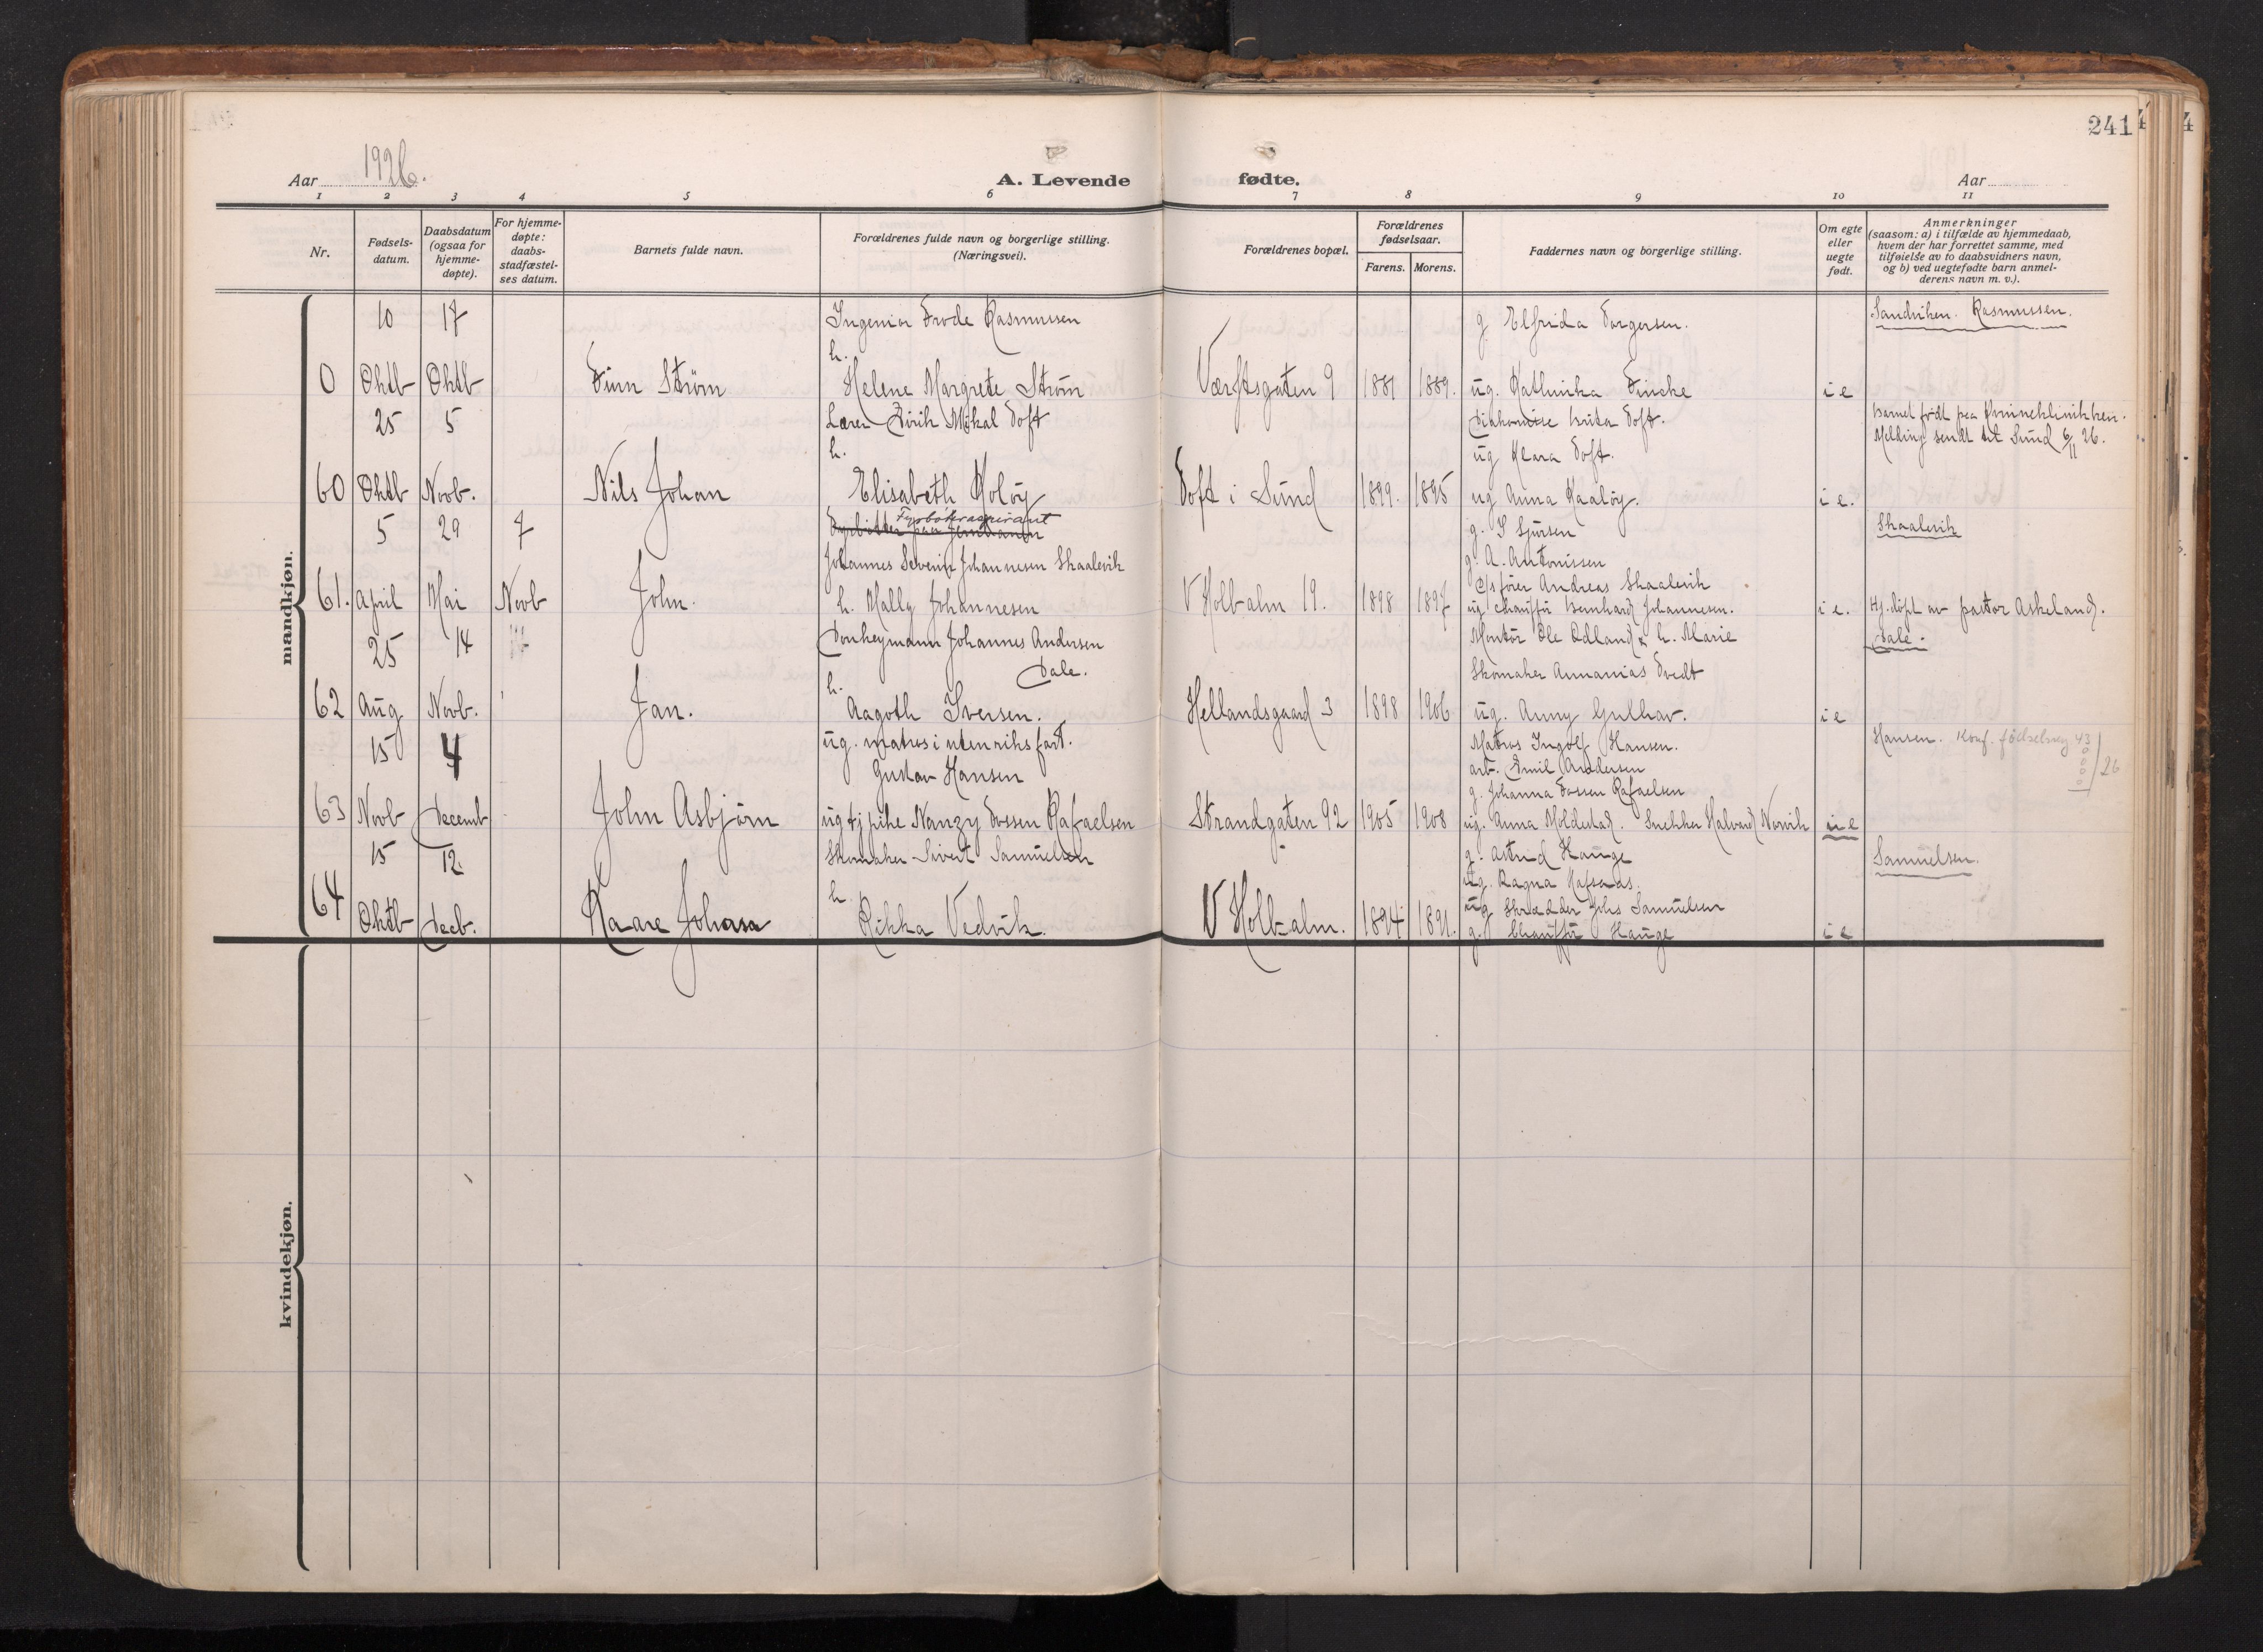 241
1926.
Aar
A. Levende fødte.
Aar
1 2 3 4 5 6 7 8 9 10 11
Nr.
Fødsels-
datum.
Daabsdatum
(ogsaa for
hjemme-
døpte).
For hjemme-
døpte:
daabs-
stadfæstel-
ses datum.
Barnets fulde navn.
Forældrenes fulde navn og borgerlige stilling.
(Næringsvei).
Forældrenes bopæl.
Forældrenes
fødselsaar.
Farens. Morens.
Faddernes navn og borgerlige stilling.
Om egte
eller
uegte
født.
Anmerkninger
(saasom: a) i tilfælde av hjemmedaab,
hvem der har forrettet samme, med
tilføielse av to daabsvidners navn,
og b) ved uegtefødte barn anmel-
derens navn m. v.).
mandkjøn.
10 17 Ingeniør Frode Rasmussen g Elfrida Torgersen. Sandviken. Rasmussen.
h.
0 Oktb Oktb Finn Strøm Helene Margrete Strøm Værftsgaten 9 1881 1889. ug. Kathinka Fincke i e
25 5 Lærer Eirik Mikal Toft Diakonisse Brita Toft. Barnet født paa Kvineklinikken.
Melding sendt til Sund 6/11 26.
h. ug Klara Toft.
60 Oktb Novb. Nils Johan Elisabeth Koløy Toft i Sund 1899. 1895 ug Anna Kaaløy. i e.
5 29 7 Fyrbøteraspirant g. S Sjursen Skaalevik
Johannes Severin Johannesen Skaalevik g. A. Antonissen
fører Andreas Skaalevik
61. April Mai Novb John. h. Mally Johannesen V Holbalm 19. 1898 1897 ug chauffør Bernhard Johannesen. i e. Hj. døpt av pastor Askeland.
25 14 Donkeymann Johannes Andersen Montør Ole Odland & h. Marie Dale.
Dale. Skomaker Annanias Tvedt
h.
62 Aug Novb. Jan. Aagoth Iversen. Hellandsgaard 3 1898 1906 ug. Anny Gullhav. i e
15 4 ug. matros i utenriksfart. Matros Ingolf Hansen. Hansen. Konf. fødselsreg 43 / 26
Gustav Hansen arb. Emil Andersen
g. Johanna Tossen Rafaelsen
63 Novb Decemb John Asbjørn ug tj pike Nanzy Tossen Rafaelsen Strandgaten 92 1905 1908 ug. Anna Moldestad. Snekker Halvard Norvik u e
15 12 Skomaker Sivert Samuelsen g. Astrid Hauge Samuelsen.
ug. Ragna Hafsaas.
h. ug Skrædder Johs Samuelsen
64 Oktb Decb. Kaare Johan Rikka Vedvik. V Holbalm. 1894 1891. g. Chauffør Hauge i e
kvindekjøn.